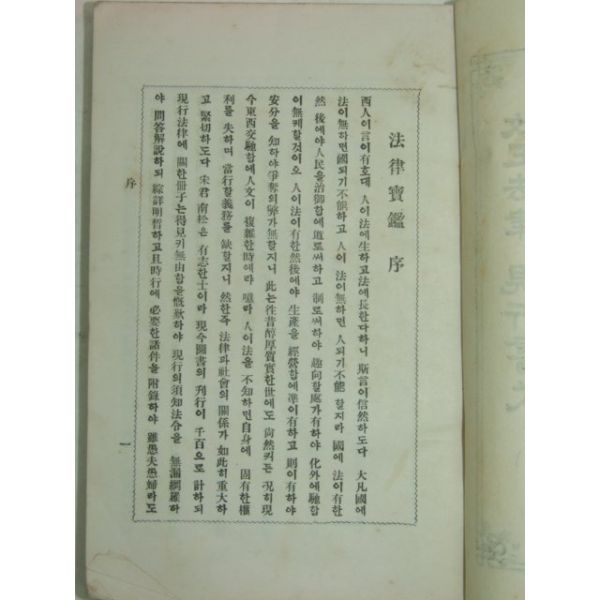 法律寶鑑 序
西人이 言이 有호대 人이 法에 生하고 法에 長한다하니 斯言이 信然하도다 大凡 國에
法이 無하면 國되기 不能하고 人이 法이 無하면 人되기 不能할지라 國에 法이 有한
然後에야 人民을 治御함에 道로써하고 制로써하야 趣向할 處가 有하야 化外에 馳함
이 無케할것이오 人이 法이 有한 然後에야 生產을 經營함에 準이 有하고 則이 有하야
安分을 知하야 爭奪의 弊가 無할지니 此는 往昔 醇厚質實한 世에도 尙然커든 况히 現
今 東西交馳함에 人文이 複雜한 時에랴 噫라 人이 法을 不知하면 自身에 固有한 權
利를 失하며 當行할 義務를 缺할지니 然한즉 法律과 社會의 關係가 如此히 重大하
고 緊切하도다 宋君 南松은 有志한 士이라 現今 圖書의 刊行이 千百으로 計하되
現行法律에 關한 冊子는 得見키 無由함을 慨歎하야 現行의 須知法令을 無漏網羅하
야 問答解說하되 綜詳明晳하고 且 時行에 必要한 諸件을 附錄하야 雖愚夫愚婦라도
序
一